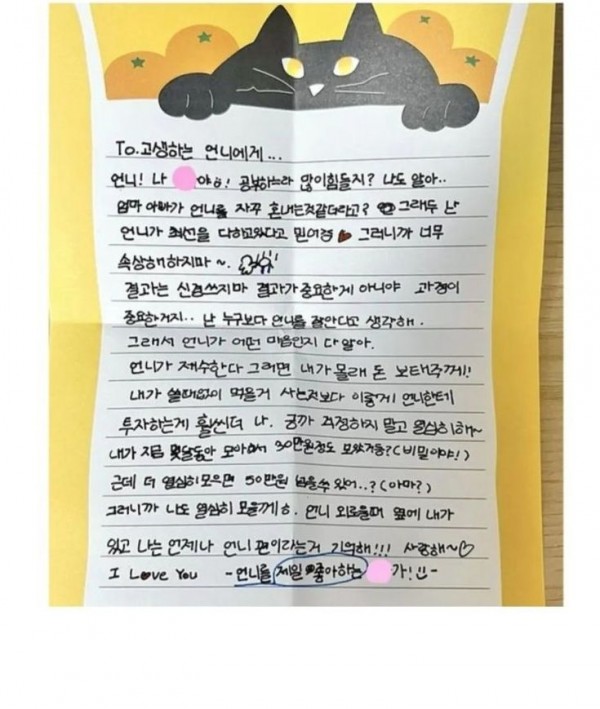 To. 고생하는 언니에게...
언니! 나 야ㅎ! 공부하느라 많이힘들지? 나도 알아..
엄마 아빠가 언니를 자꾸 혼내는것같더라고? 그래두 난
언니가 최선을 다하고있다고 믿어염 그러니까 너무
속상해하지마~.
결과는 신경쓰지마 결과가 중요한게 아니야 과정이
중요한거지.. 난 누구보다 언니를 잘안다고 생각해.
그래서 언니가 어떤 마음인지 다 알아.
언니가 재수한다 그러면 내가 몰래 돈 보태주께!
내가 쓸때없이 먹을거 사는것보다 이렇게 언니한테
투자하는게 훨씬더 나. 긍까 걱정하지 말고 열심히해~
내가 지금 몇달동안 모아놔서 30만원정도 모았거등?(비밀이야!)
근데 더 열심히모으면 50만원 넘을수 있어..?(아마?)
그러니까 나도 열심히 모을께ㅎ. 언니 외로울때 옆에 내가
있고 나는 언제나 언니 편이라는거 기억해!!! 사랑해~♡
I Love You - 언니를 제일 좋아하는 가! -